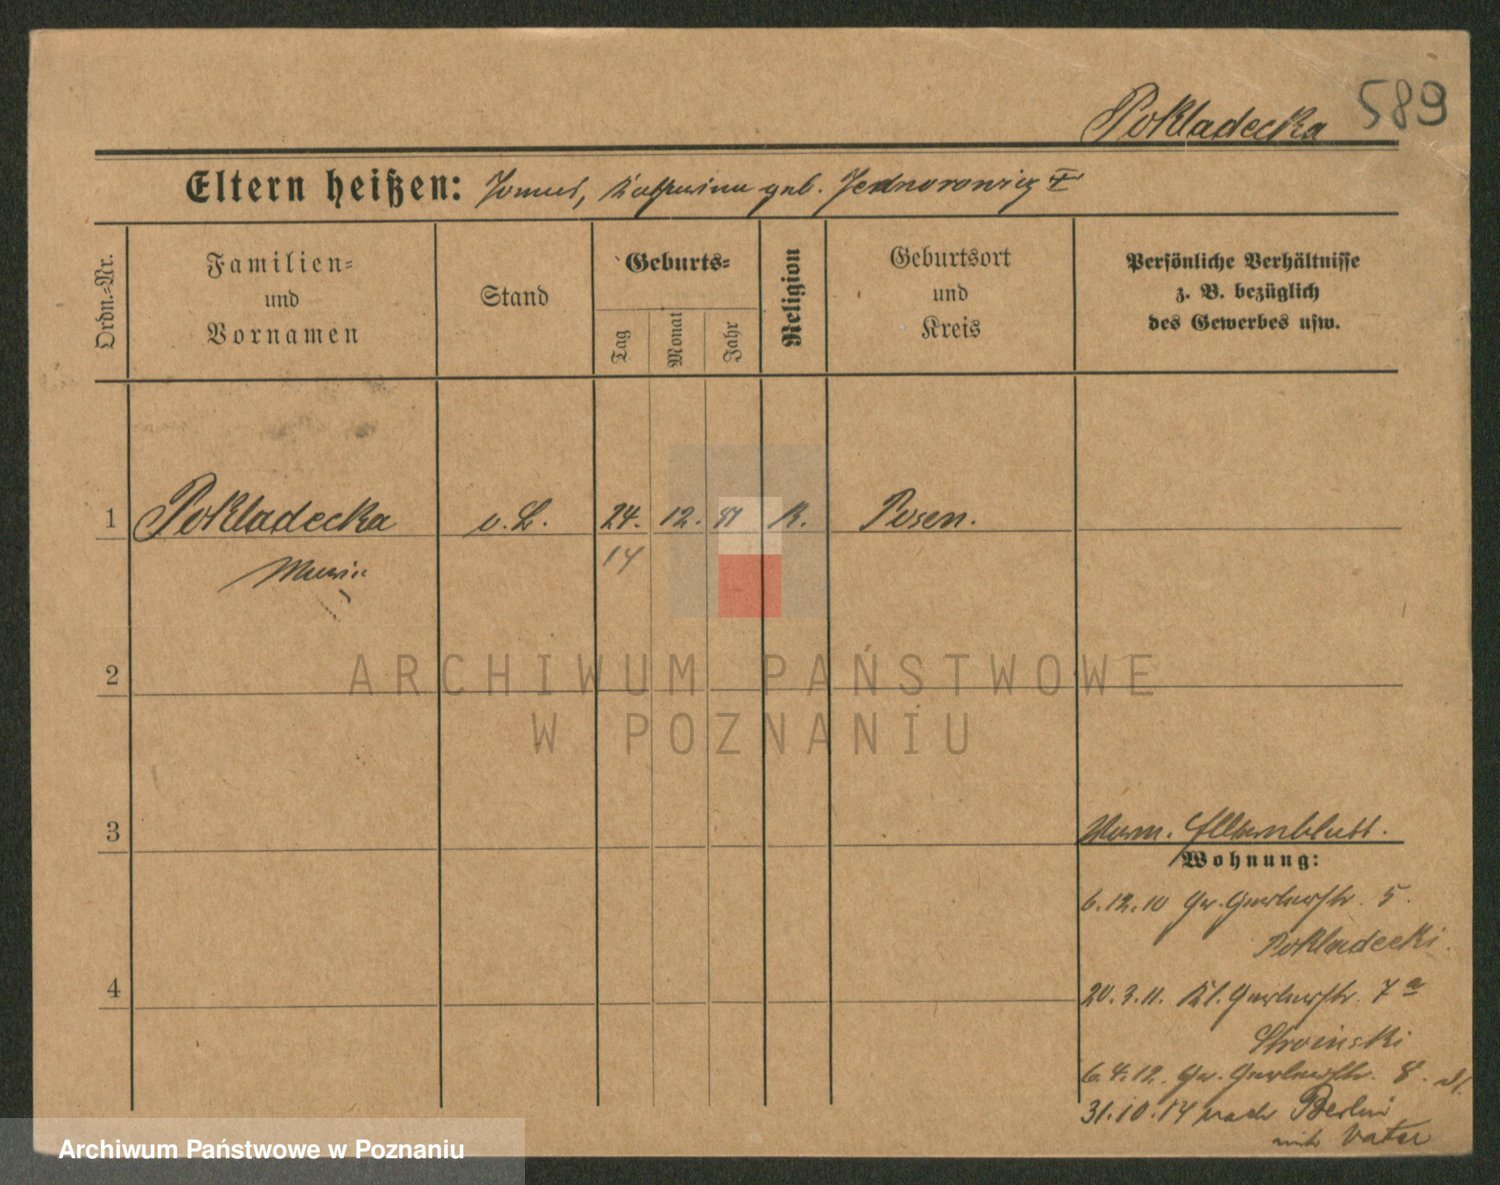 Pokladecka 589
Eltern heißen: Tomas, Katharina geb. Jednorowicz
Ordn.-Nr.
Familien-
und
Vornamen
Stand
Geburts-
Tag
Monat
Jahr
Religion
Geburtsort
und
Kreis
Persönliche Verhältnisse
z. B. bezüglich
des Gewerbes usw.
1 Pokladecka o. G. 24. 12. K. Posen.
14
Maria
2
ARCHIWUM PAŃSTWOWE
W POZNANIU
3
Elternblatt.
Wohnung:
6.12.10 Gr. Gerberstr. 5.
Pokladecki.
4
20.3.11. Kl. Gerberstr. 7a
Stroinski
6.4.12. Gr. Gerberstr. 8.
31.10.14 nach Berlin
mit Vater
Archiwum Państwowe w Poznaniu